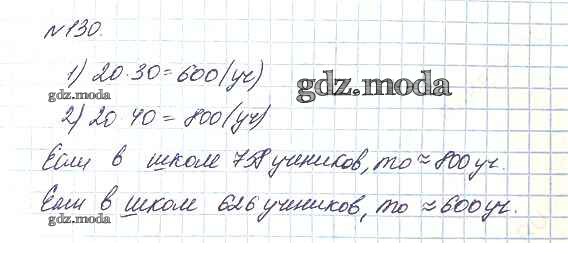 №130.
1) 20·30=600(уч)
gdz.moda
gdz.moda
2) 20 40=800(уч)
Если в школе 758 учеников, то ≈ 800 уч.
Если в школе 626 учеников, то ≈ 600 уч.
gdz.moda